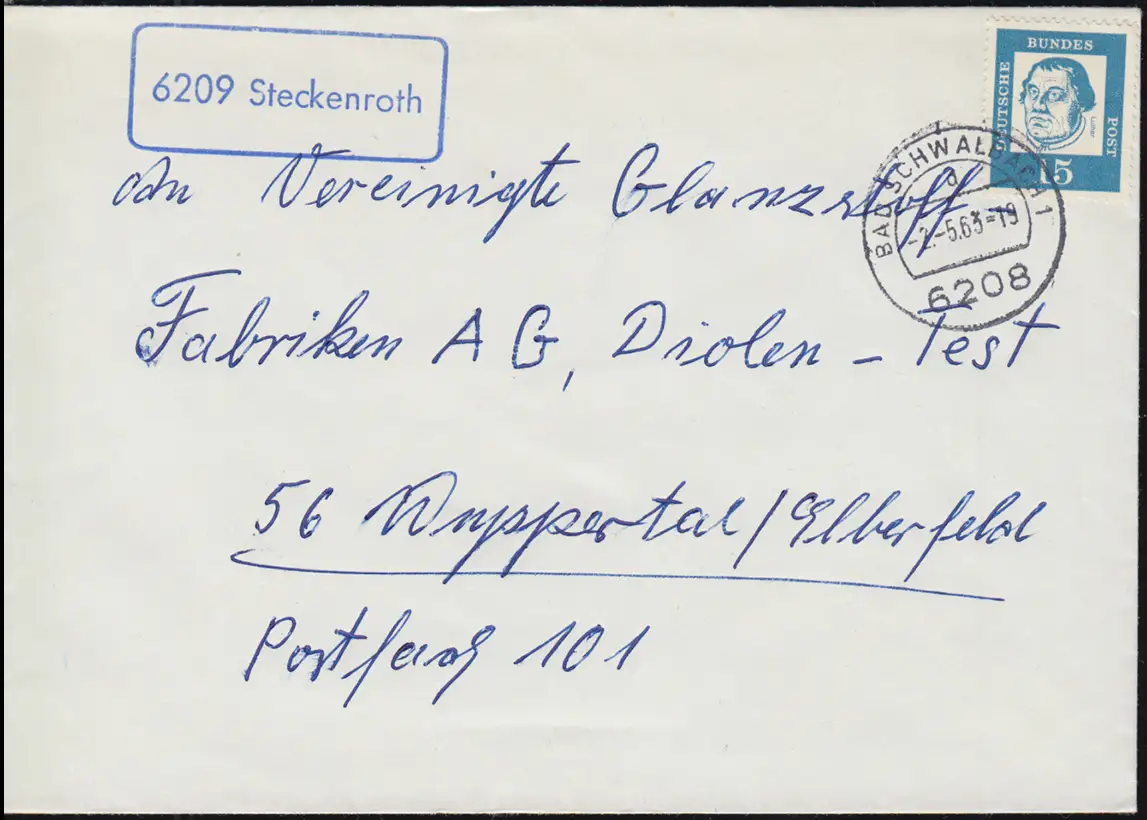 6209 Steckenroth
DEUTSCHE BUNDES POST
Luther
15
BAD SCHWALBACH 1
a
-2.-5.63-19
6208
An Vereinigte Glanzstoff-
Fabriken AG, Diolen - Test
56 Wuppertal/Elberfeld
Postfach 101